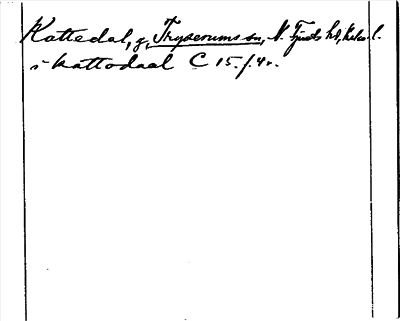 Kattedal, g, Tryserums sn, N. Tjusts hd, Kalm. l.
i kattodaal C 15. f. 4v.